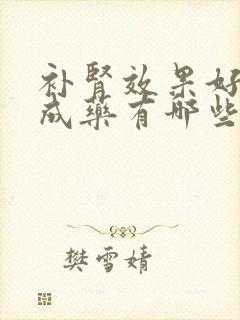 补肾效果好
成药有哪些
樊雪婧